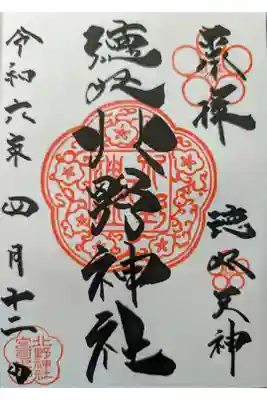 奉拝
徳丸天神
徳丸北野神社
令和六年四月十二日
北野神社